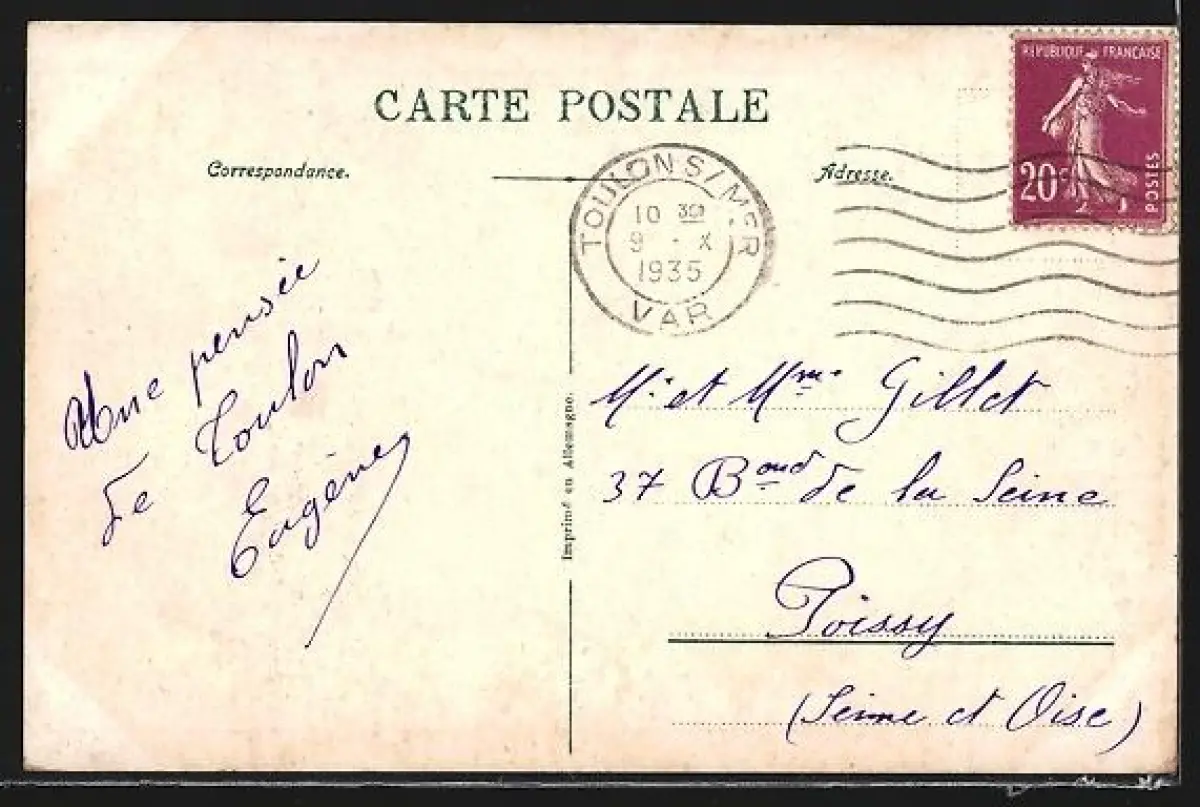 CARTE POSTALE
Correspondance.
Adresse.
RÉPUBLIQUE FRANÇAISE
20c
POSTES
TOULON S/MER
10 30
9 - X
1935
VAR
Une pensée
de Toulon
Eugène
Imprimé en Allemagne.
Mr. et Mme. Gillet
37 Bould de la Seine
Poissy
(Seine et Oise)